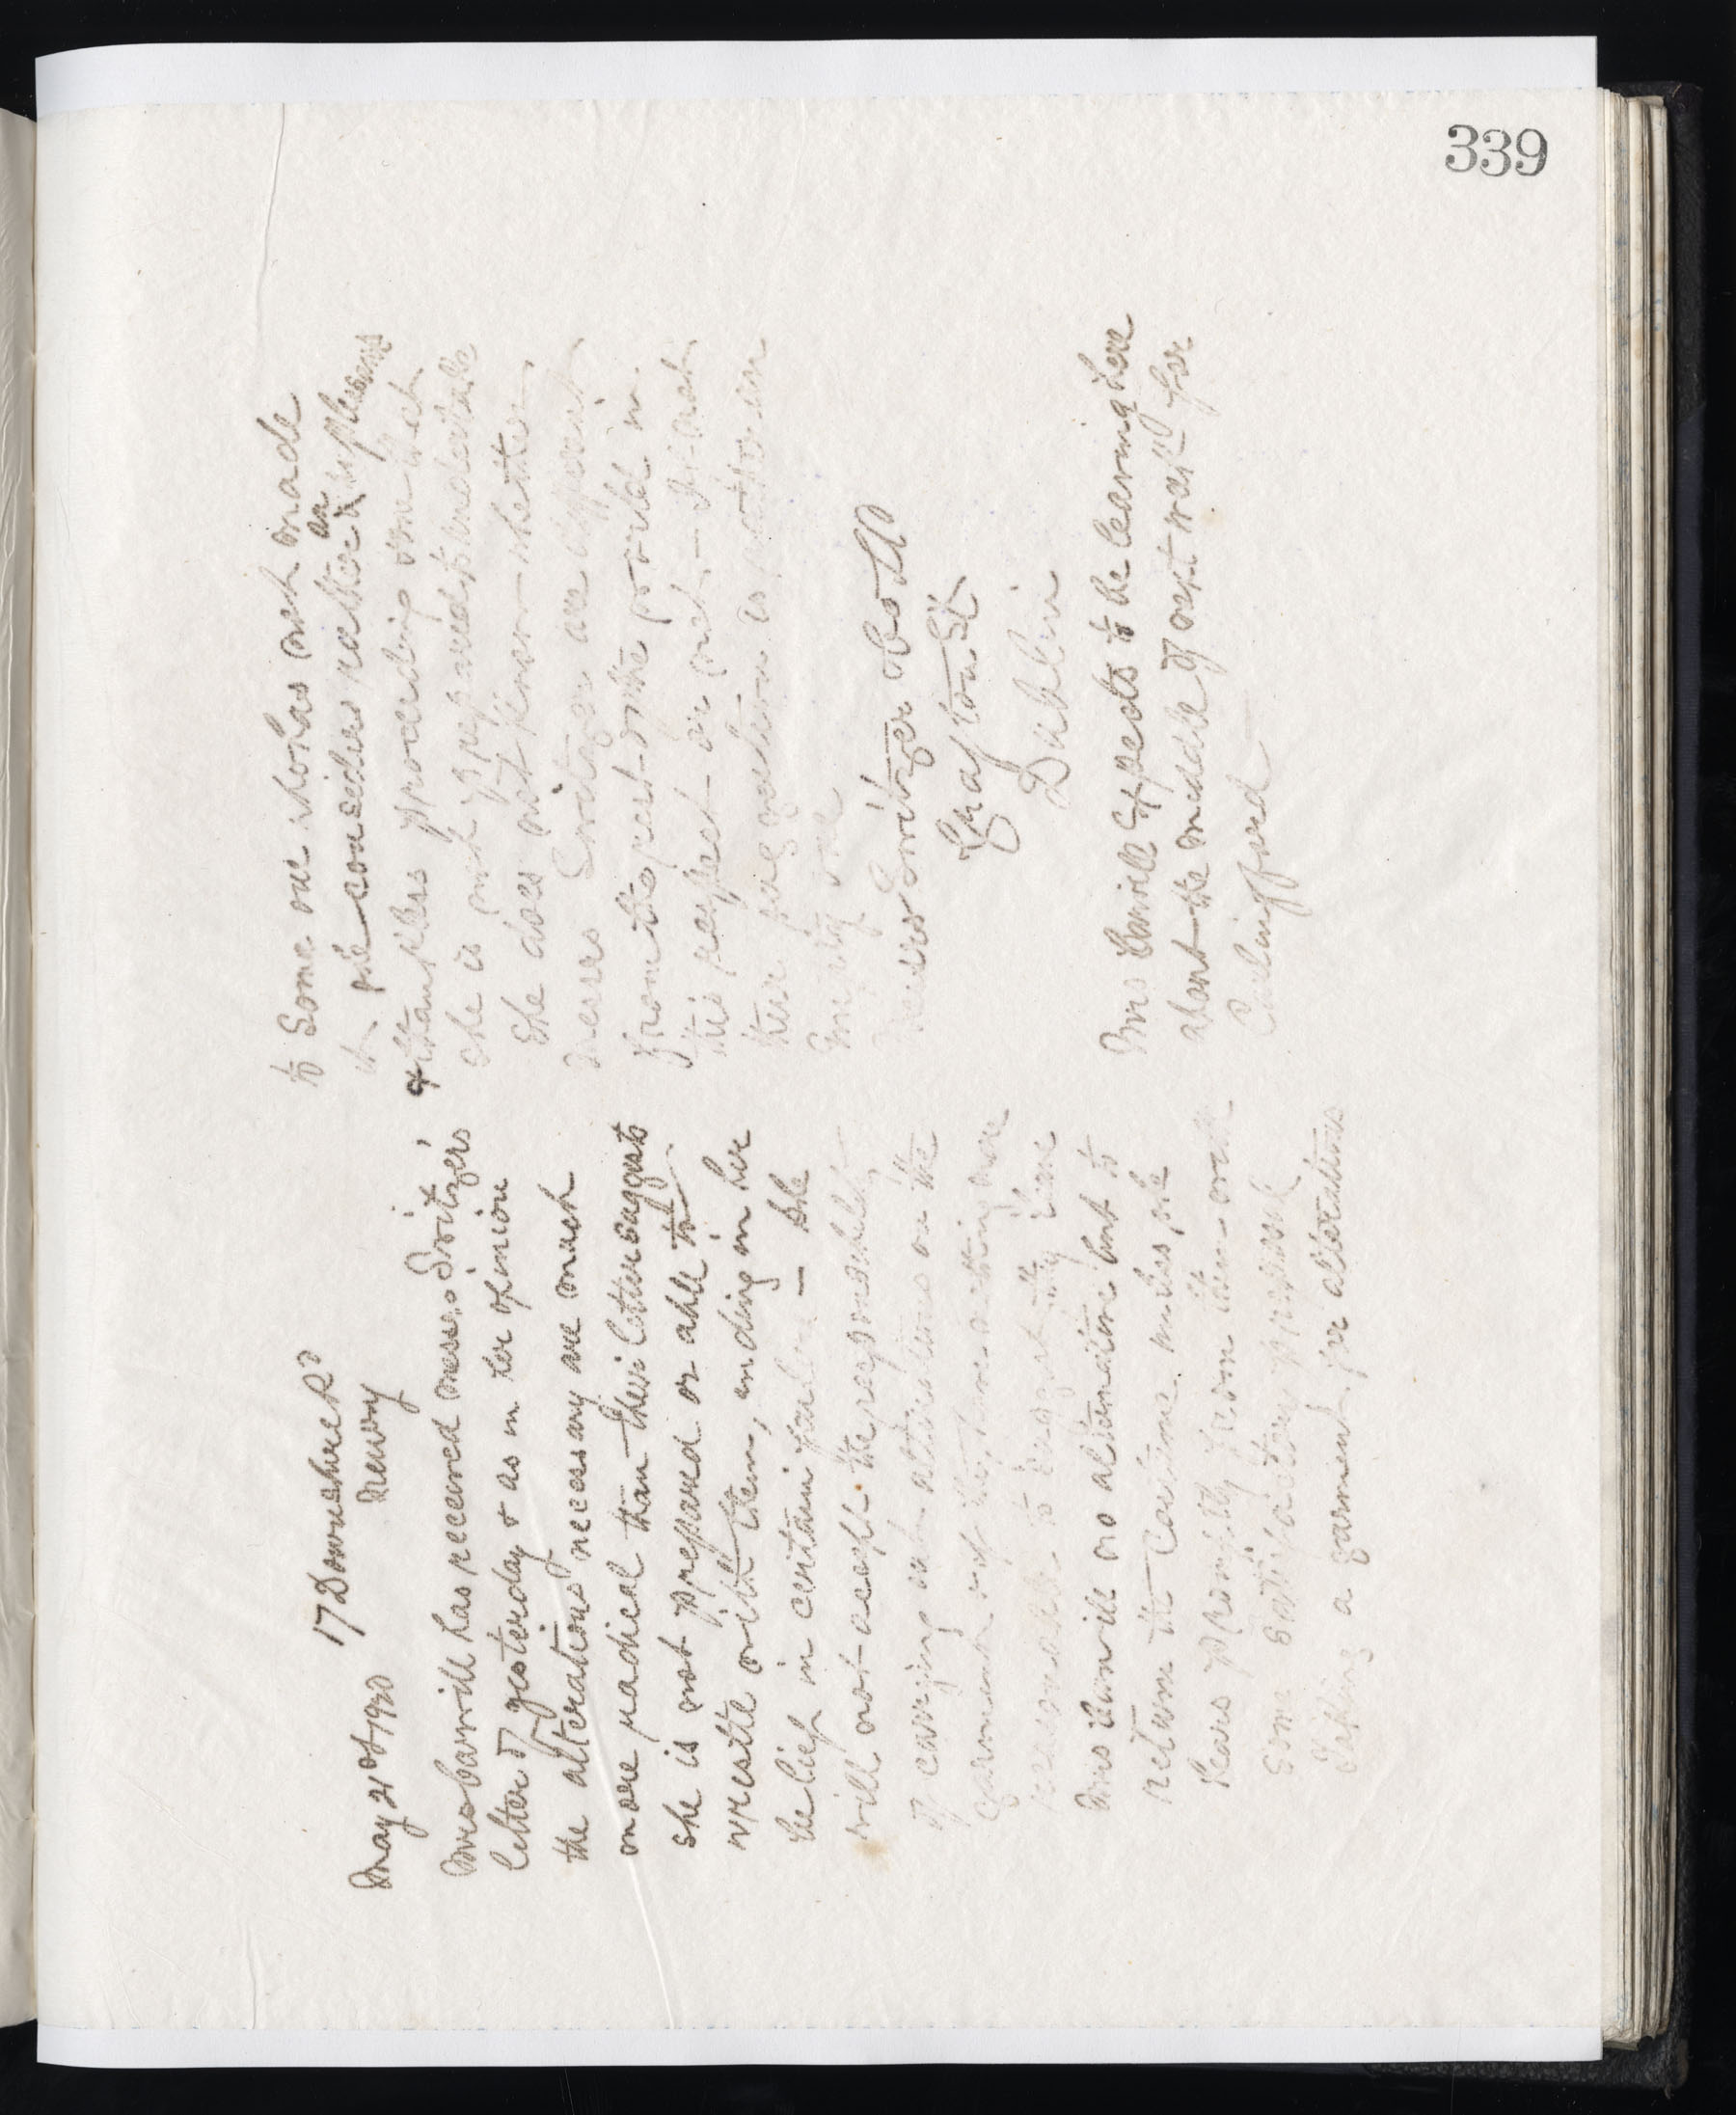 339
May 21st 1920 17 Downshire Rd
Newry
Mrs Barvill has received Messrs Switzer's
letter of yesterday & as in her opinion
the alterations necessary are much
more radical than their letter suggests
she is not prepared or able to
wrestle with them, ending in her
belief in certain failure — She
will not accept the responsibility
of carrying out alterations on the
garment
reasonable to
Mrs Barvill no alternative but to
return the Costume unless, she
hears promptly from them with
some satisfactory
Taking a garment for alterations
to some one who has not made
it she considers rather a an unpleasant
& thankless proceeding one that
she is not prepared to undertake
She does not know whether
Messrs Switzer are different
from the rest of the world in
this respect or not —
their
Simply one
Messrs Switzer & Co Ltd
Grafton St
Dublin
Mrs Barvill expects to be leaving here
about the middle of next week for
Carlingford